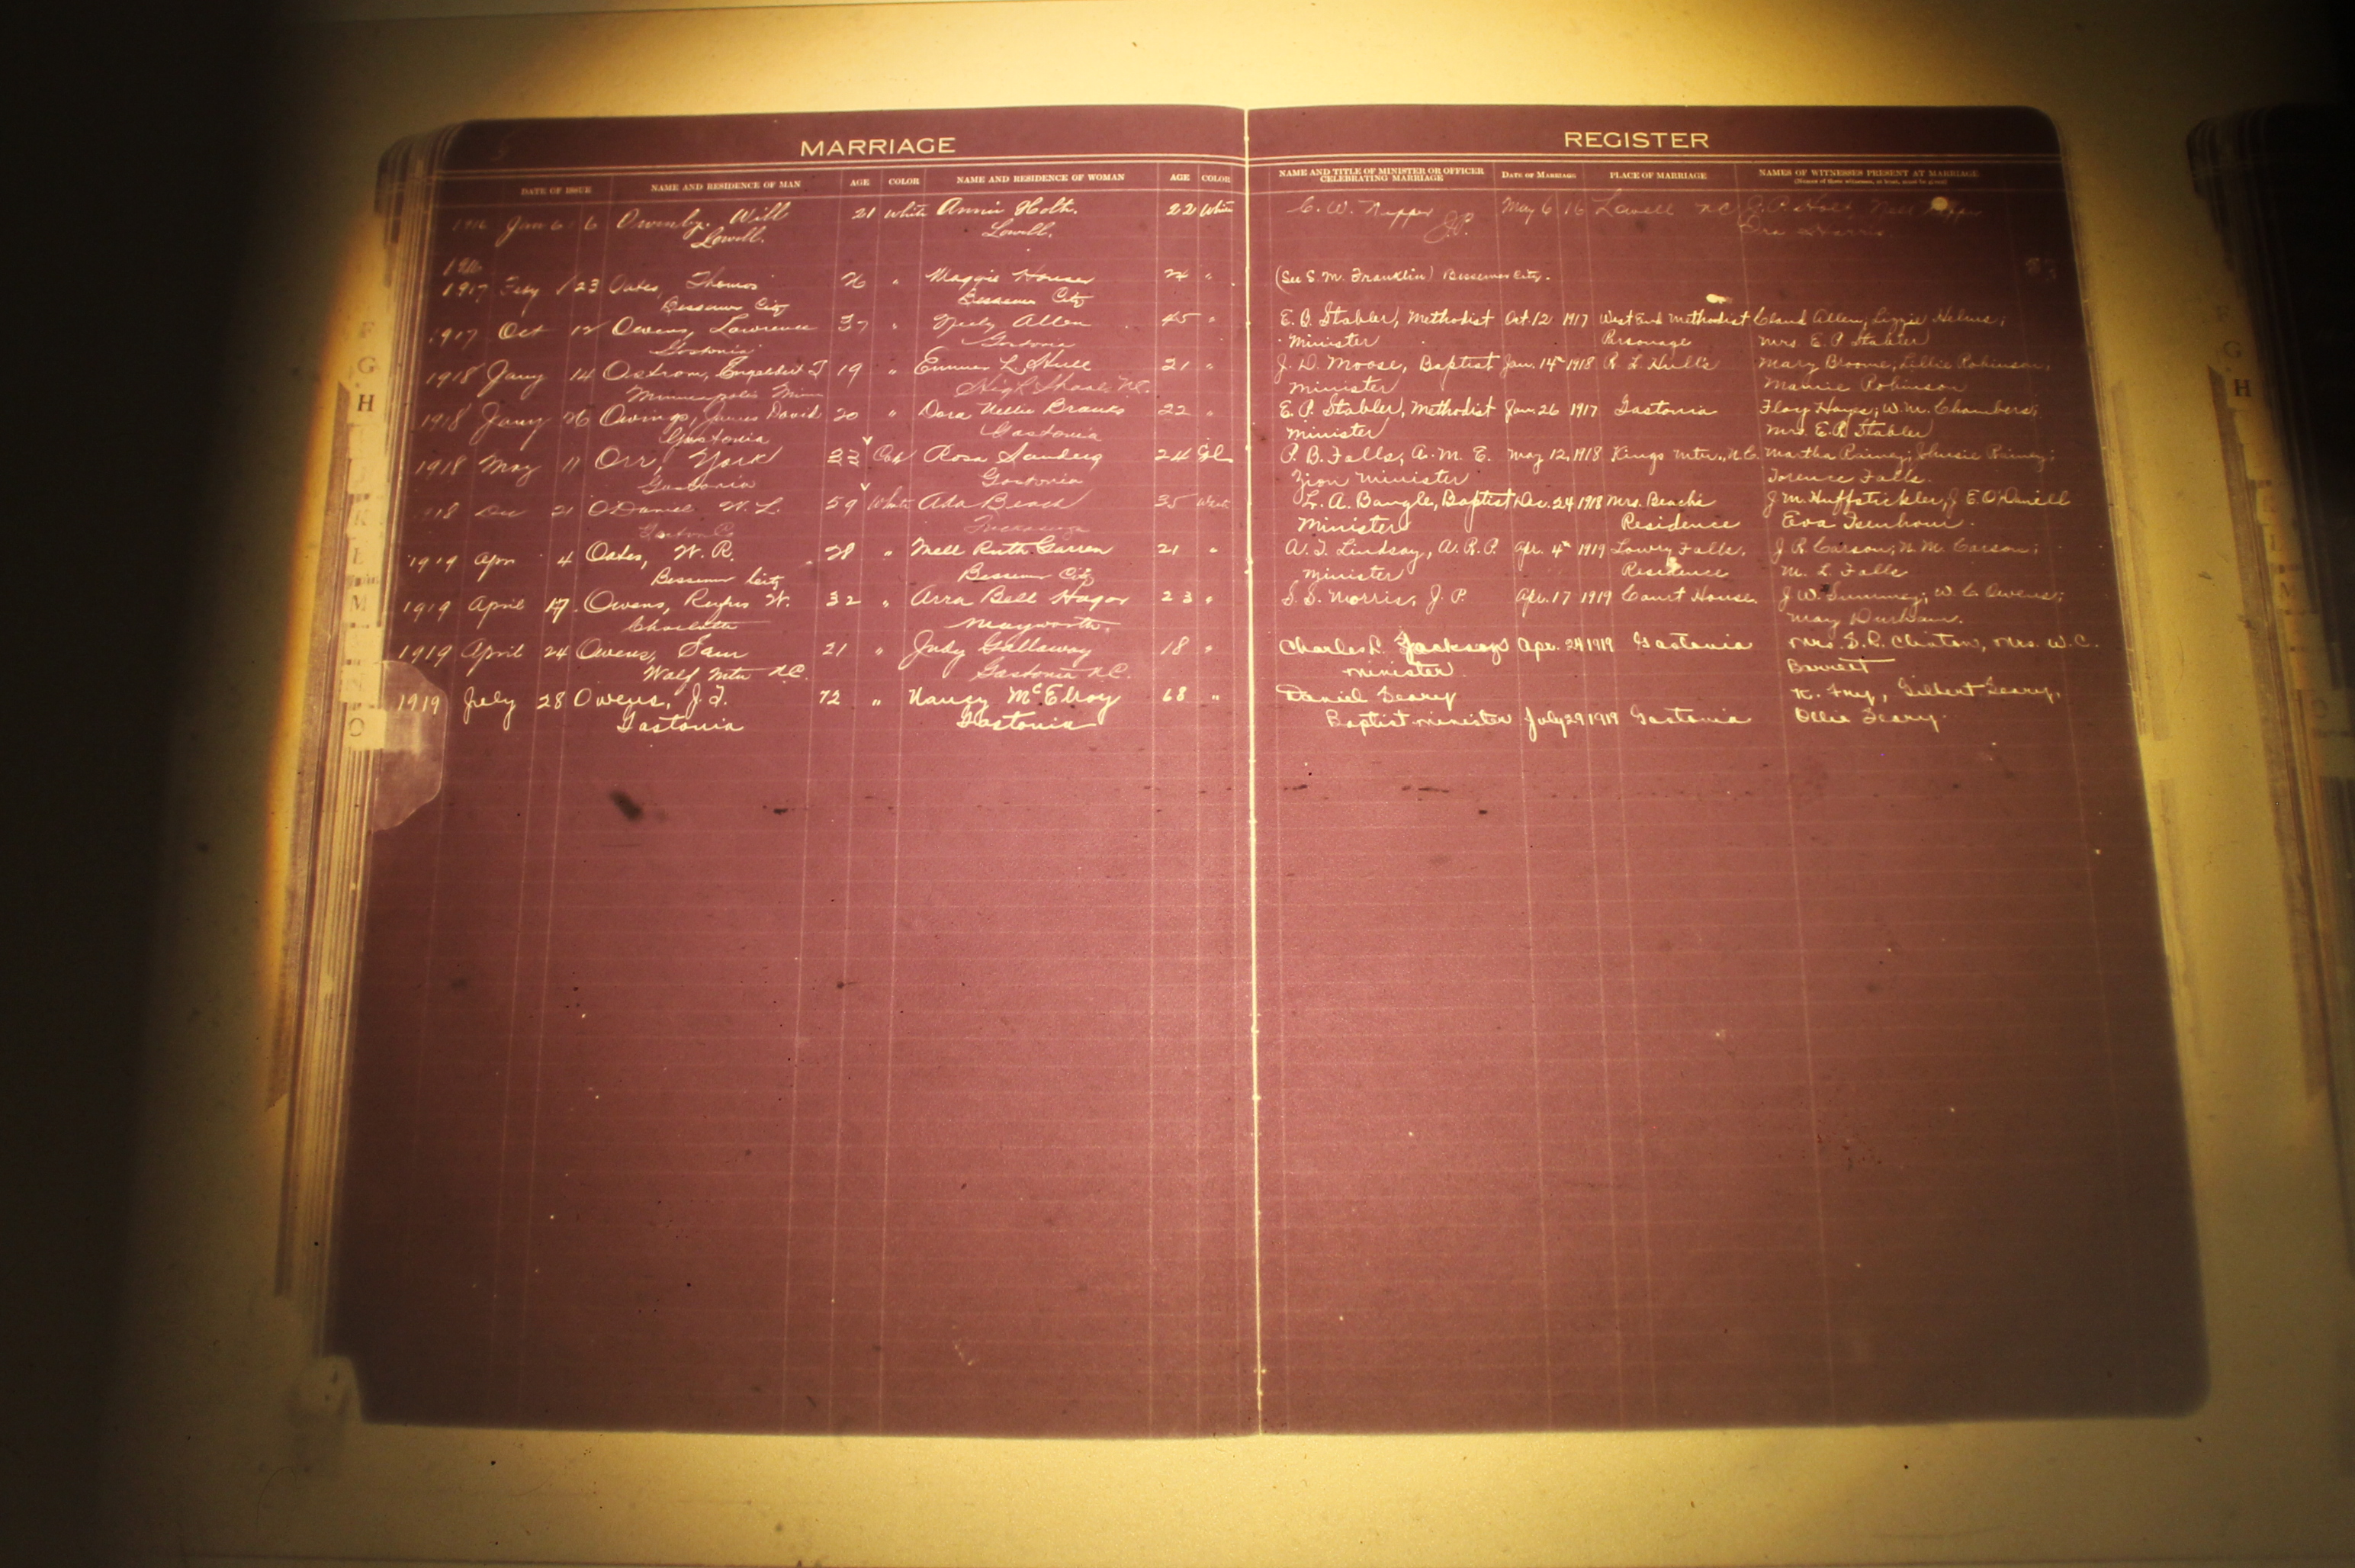 MARRIAGE
REGISTER
DATE OF ISSUE NAME AND RESIDENCE OF MAN AGE COLOR NAME AND RESIDENCE OF WOMAN AGE COLOR
NAME AND TITLE OF MINISTER OR OFFICER CELEBRATING MARRIAGE DATE OF MARRIAGE PLACE OF MARRIAGE NAMES OF WITNESSES PRESENT AT MARRIAGE
1916 Jan 6 6 Ownby, Will 21 White Annie Holt. 22 White C. W. Nipper May 6 16 Lowell NC
Lowell. Lowell. J.P. Ora Harris.
1916
1917 Feby 23 Oates, Thomas 26 " Maggie Houser 24 " (See S. M. Franklin) Bessemer City.
Bessemer City Bessemer City
1917 Oct 12 Owens, Lawrence 37 " Allen 45 " Stabler, Methodist Oct. 12 1917 West End Methodist Claud Allen; Lizzie Helms;
Gastonia Gastonia Minister Parsonage Mrs. E. P. Stabler
1918 Jany 14 Ostrom, Engelbert T 19 " L. Hull 21 " J. D. Moose, Baptist Jan. 14th 1918 R. L. Hull's Mary Broome, Lillie Robinson,
Minneapolis Minn High Shoals N.C. Minister Mamie Robinson
1918 Jany 26 Owings, James David 20 " Dora Nellie Branks 22 " E. P. Stabler, Methodist Jan. 26 1917 Gastonia Floy Hayes; W. M. Chambers;
Gastonia Gastonia Minister Mrs. E. P. Stabler
1918 May 11 Orr, York 33 Col Rosa Sanders 24 Col P. B. Falls, A. M. E. May 12, 1918 Kings Mtn., N.C. Martha Rainey;
Gastonia Gastonia Zion Minister Torence Falls.
18 Dec 21 O'Daniel W. L. 59 White Ada Beach 35 White L. A. Bangle, Baptist Dec. 24 1918 Mrs. Beach's J M. Huffstickler, J E. O'Daniell
Gaston Co Minister Residence Eva Isenhour.
1919 Apr 4 Oates, W. R. 28 " Nell Ruth Garren 21 " A. T. Lindsay, A. R. P. Apr. 4th 1919 Lowry Falls, J R Carson; N. M. Carson;
Bessemer City Bessemer City Minister Residence M. L. Falls
1919 April 17. Owens, Rufus W. 32 " Arra Bell Hagar 23 " S. S. Morris, J. P. Apr. 17 1919 Court House. J W. Summey; W. C. Owens;
Charlotte Mayworth. May Durham.
1919 April 24 Owens, Sam 21 " Judy Gallaway 18 " Charles L. Jackson Apr. 24 1919 Gastonia Mrs. S. C. Clinton, Mrs. W. C.
Wolf Mtn N.C. Gastonia N.C. Minister. Barrett
1919 July 28 Owens, J. F. 72 " Nancy McElroy 68 " Daniel Geary K. Fry, Gilbert Geary,
Gastonia Gastonia Baptist minister July 29 1919 Gastonia Ollie Geary.
F
G
H
K
L
M
O
H